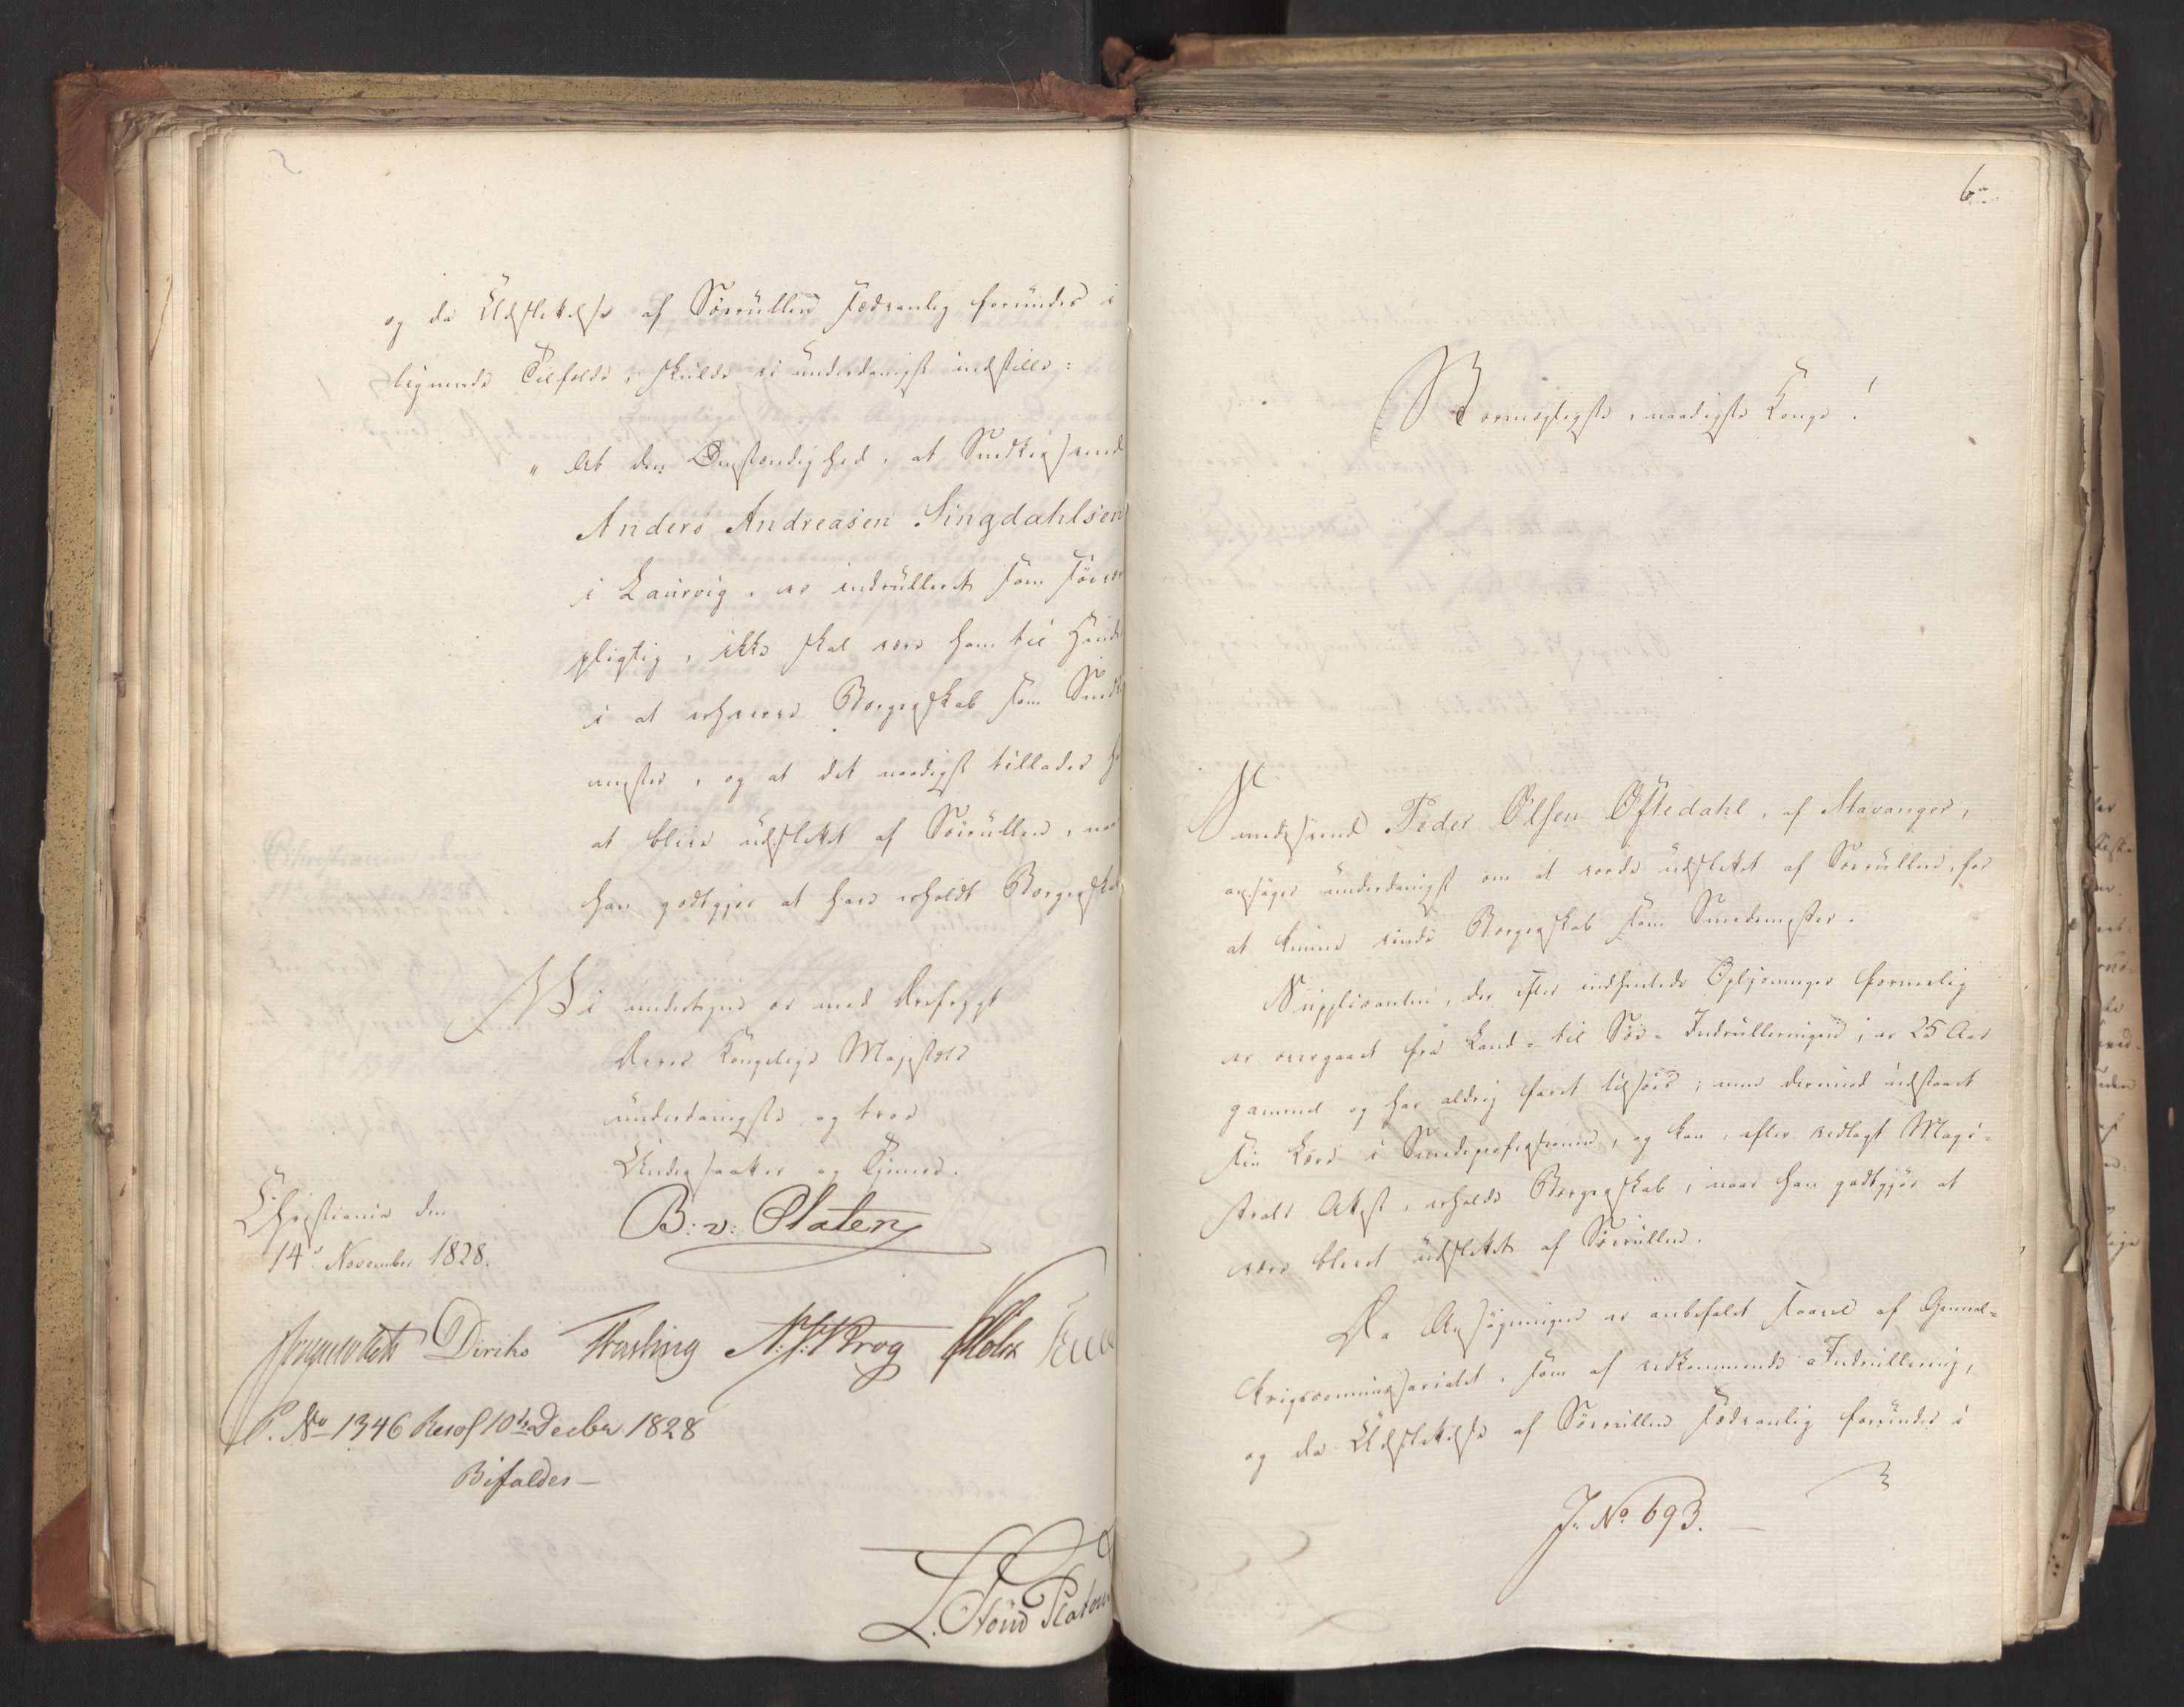 og da Udslettelse af Söerullen sædvanlig forundes i
lignende Tilfælde, skulde vi underdanigst indstille:
"At den Omstændighed, at Snedkersvend
Anders Andreasen Lingdahlsen
i Laurvig, er indrulleret som söevær
pligtig, ikke skal være ham til Hinder
i at erhverve Borgerskab som Snedker
mester, og at det naadigst tillades
at blive udslettet af Söerullen, naar
han godtgjör at have erholdt Borgerskab
Vi undertegne os med Ærefrygt
Deres Kongelige Majestæts
underdanigste og troe
Undersaatter og Tjenere.
Christiania den
14de November 1828.
B: v: Platen
Diriks Fasting N. J. Krog Holst
P. No 1346 Resol 10de Decbr 1828
Bifaldes —
L. Stoud Platou
6
Stormægtigste, naadigste Konge!
Smedesvend Peder Olsen Oftedahl, af Stavanger,
ansöger underdanigst om at vorde udslettet af Söerullen, for
at kunne vinde Borgerskab som Smedemester.
Supplicanten, der efter indhentede Oplysninger formelig
er overgaaet fra Land- til Söe-Indrulleringen, er 25 Aar
gammel og har aldrig faret tilsöes; men derimod udstaaet
sin Lære i Smedeprofessionen, og kan, efter vedlagt Magi-
strats Attest, erholde Borgerskab, naar han godtgjör at
være blevet udslettet af Söerullen.
Da Ansögningen er anbefalet saavel af General-
krigscommissariatet, som af vedkommende Indrullering,
og da Udslettelse af Söerullen sædvanlig forundes i
J. No 693. —